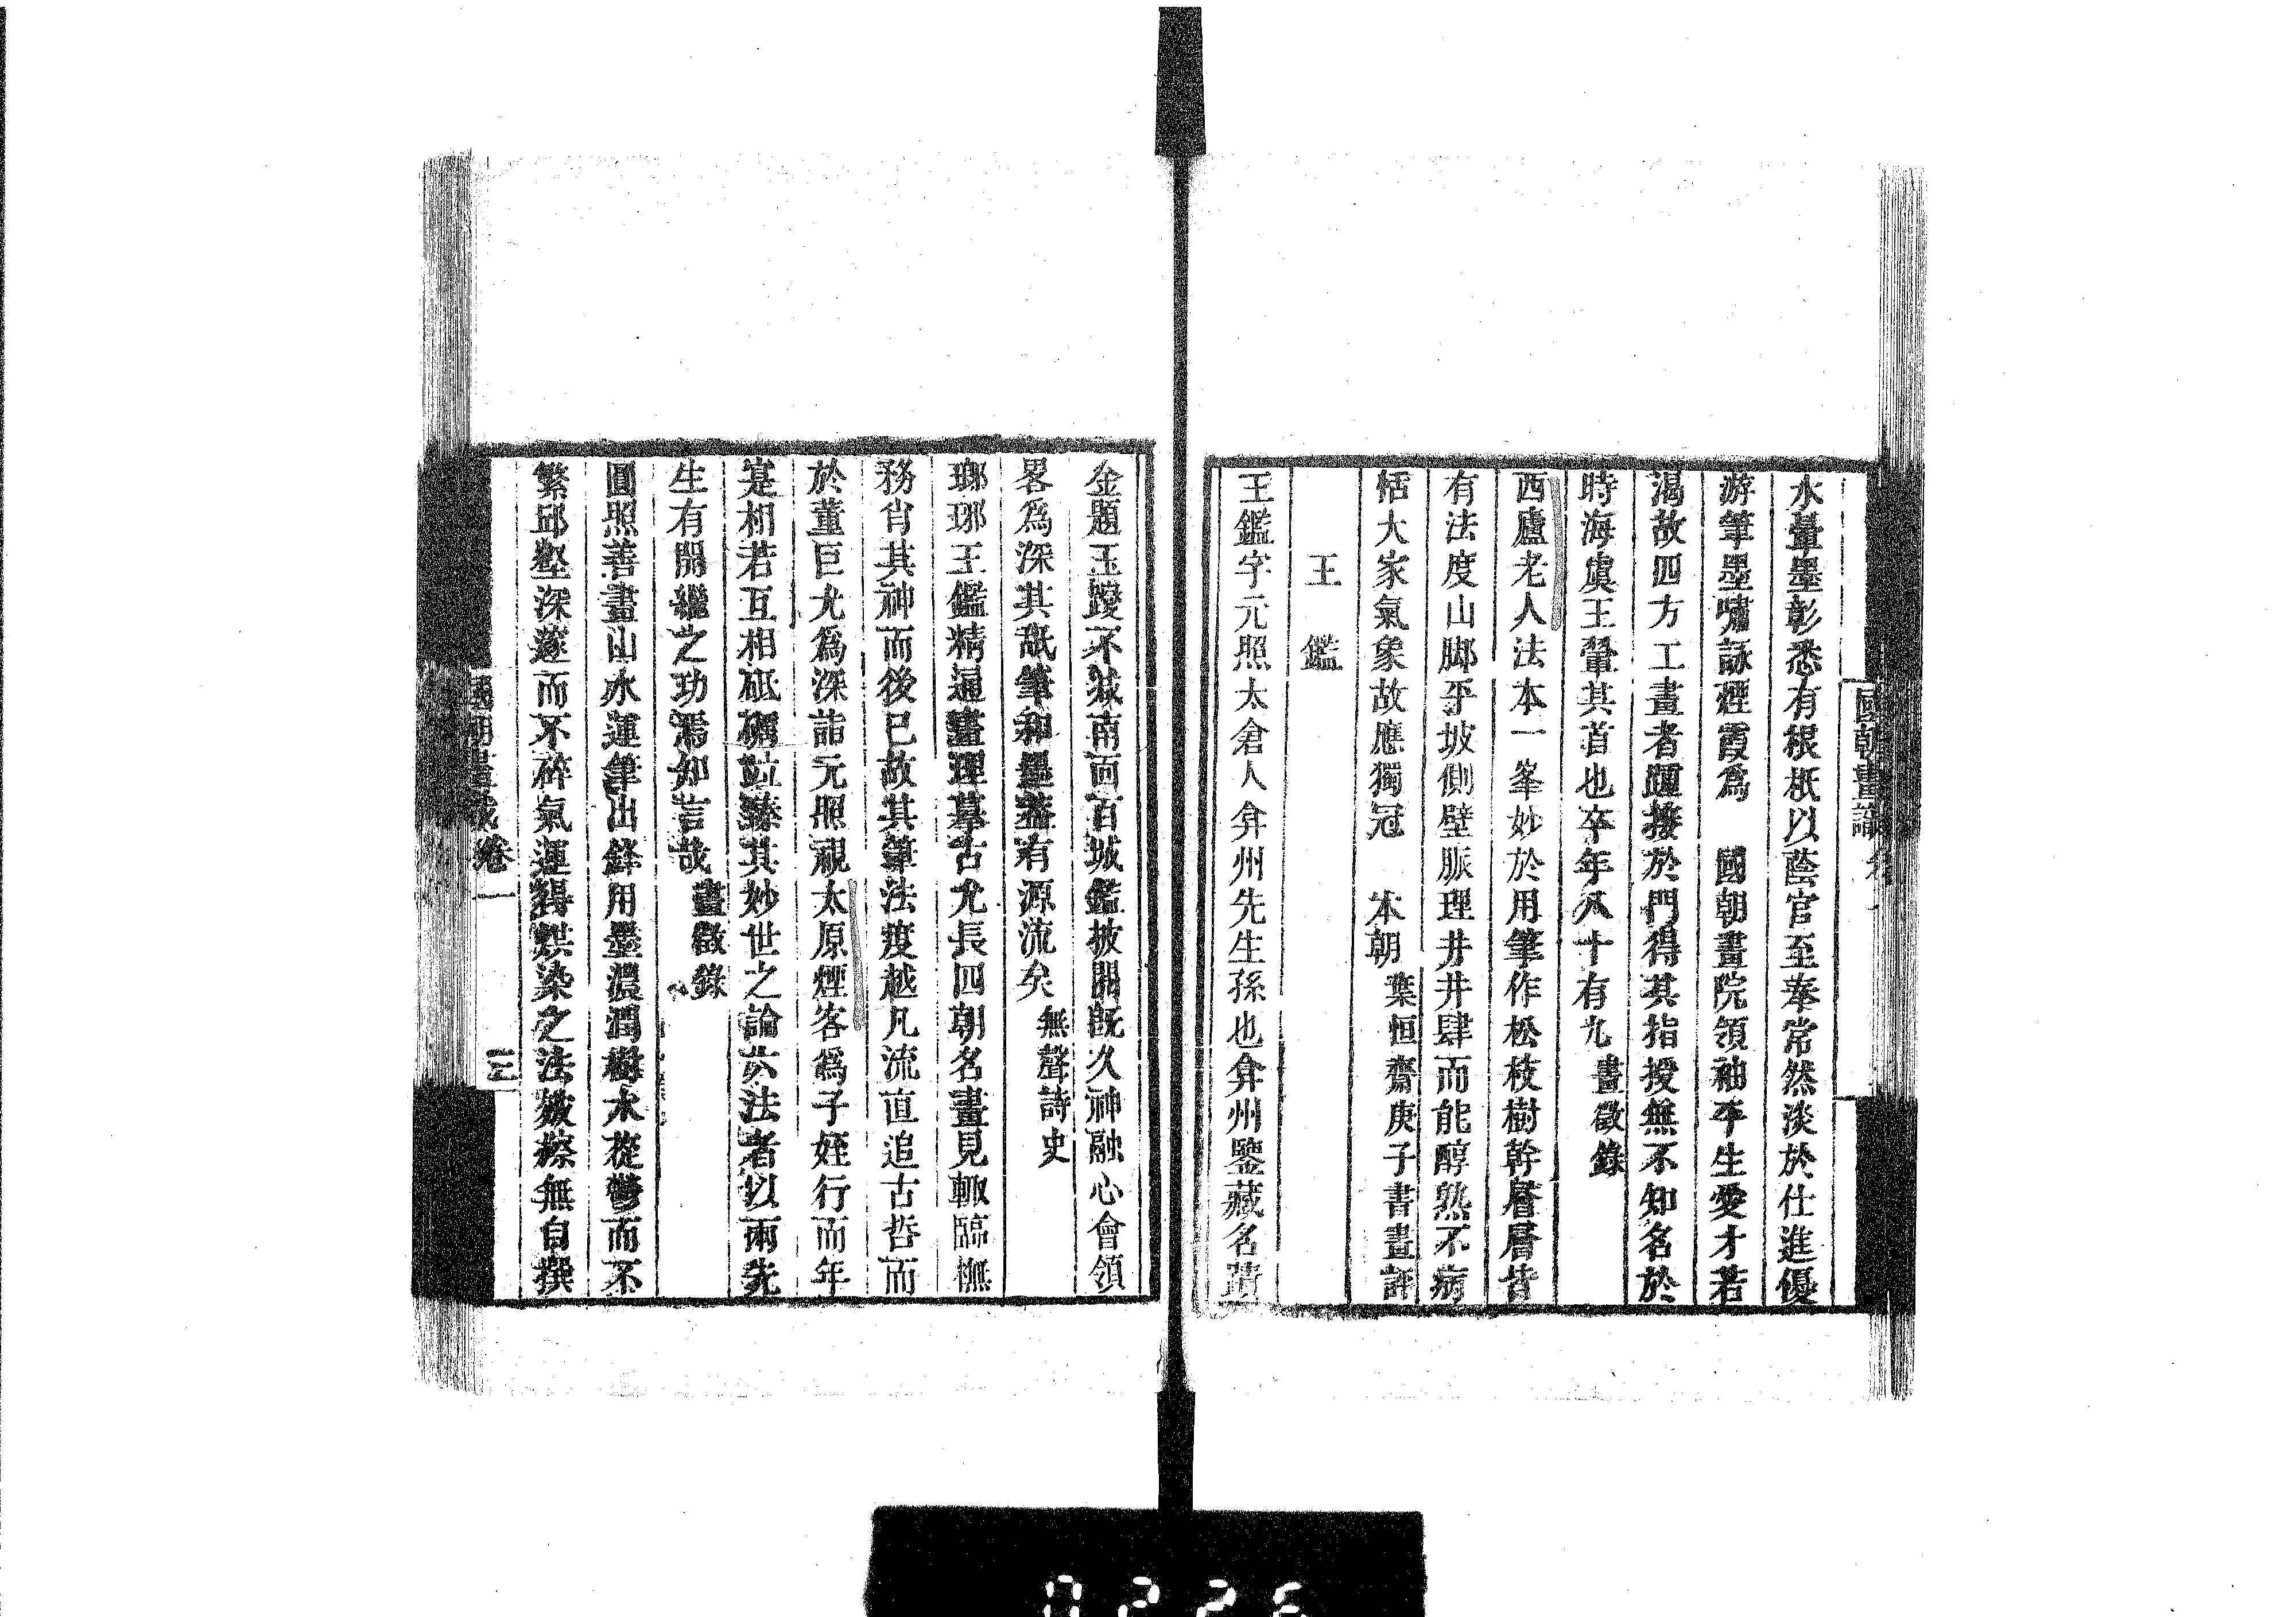 水暈墨彰悉有根柢以蔭官至奉常然淡於仕進優
游筆墨嘯詠煙霞爲　國朝畫院領袖平生愛才若
渴故四方工畫者踵接於門得其指授無不知名於
時海虞王翬其首也卒年八十有九畫徵錄
西廬老人法本一峯妙於用筆作松枝樹幹層層皆
有法度山脚平坡側壁脈理井井肆而能醇熟不病
恬大家氣象故應獨冠　本朝葉恒齋庚子書畫評
王　鑑
王鑑字元照太倉人弇州先生孫也弇州鑒藏名蹟
金題玉躞不減南面百城鑑披閱旣久神融心會領
畧爲深其舐筆和墨葢有源流矣無聲詩史
瑯琊王鑑精通畫理摹古尤長四朝名畫見輙臨橅
務肖其神而後已故其筆法度越凡流直追古哲而
於董巨尤爲深詣元照視太原煙客爲子姪行而年
寔相若互相砥礪竝臻其妙世之論六法者以兩先
生有開繼之功焉知言哉畫徵錄
圓照善畫山水運筆出鋒用墨濃潤樹木蓯鬱而不
繁邱壑深邃而不碎氣運得烘染之法皴擦無自撰
國朝畫識卷一
三
0226